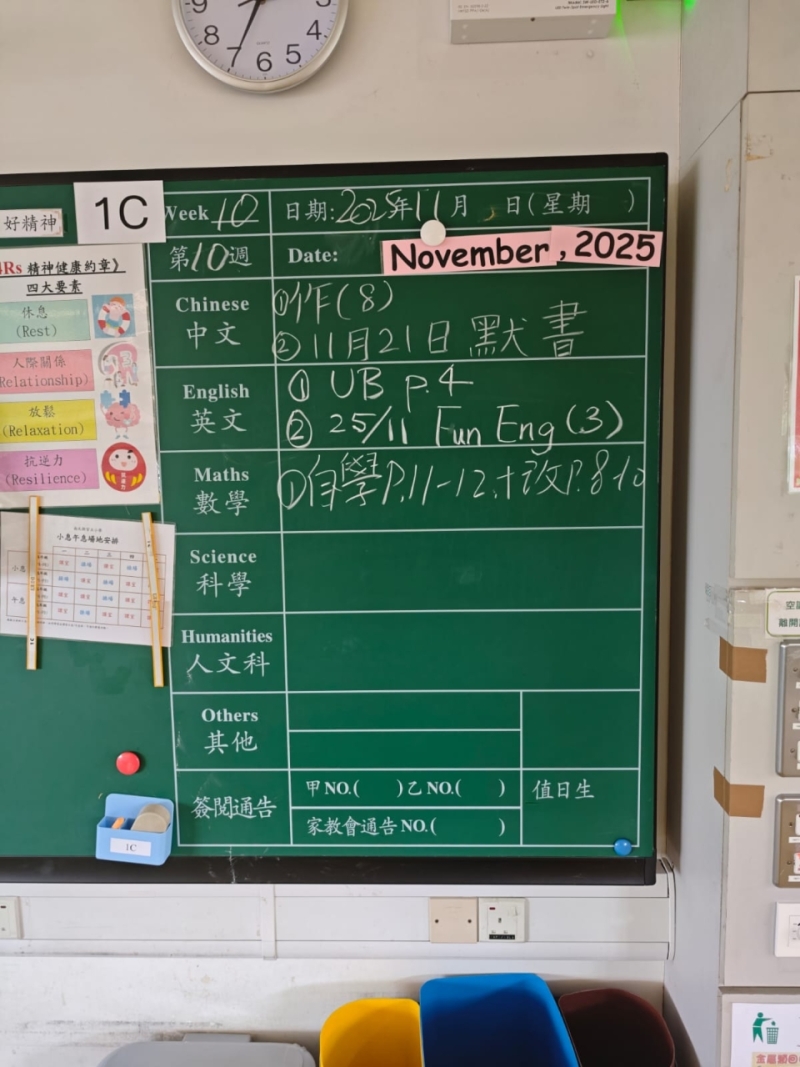 9 8 7 6 5 4 3
好精神
1C
Week 10
日期:2025年11月 日(星期 )
第10週
Date:
November, 2025
4Rs 精神健康約章》
四大要素
休息
(Rest)
人際關係
(Relationship)
放鬆
(Relaxation)
抗逆力
(Resilience)
小息午息場地安排
Chinese
中文
①作(8)
②11月21日 默書
English
英文
① UB p.4
② 25/11 Fun Eng (3)
Maths
數學
①自學P.11-12,+改P.8-10
Science
科學
Humanities
人文科
Others
其他
簽閱通告
甲NO.( )乙NO.( )
家教會通告NO.( )
值日生
1C